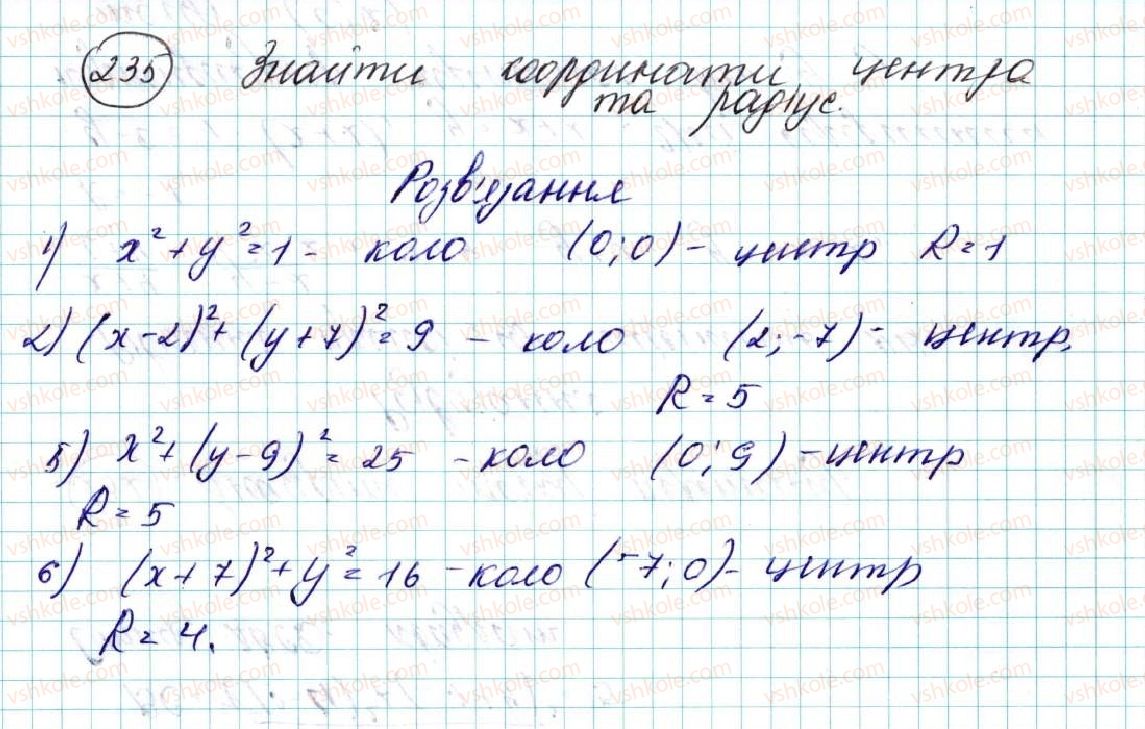 235 Знайти координати центра
та радіус.
Розв'язання
1) x² + y² = 1 - коло (0; 0) - центр R = 1
2) (x - 2)² + (y + 7)² = 9 - коло (2; -7) - центр,
R = 5
5) x² + (y - 9)² = 25 - коло (0; 9) - центр
R = 5
6) (x + 7)² + y² = 16 - коло (-7; 0) - центр
R = 4.